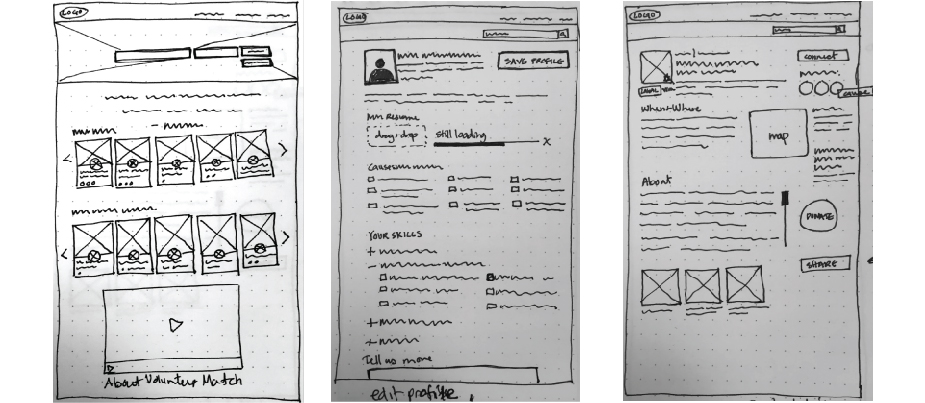 LOGO
About Volunteer Match
LOGO
SAVE PROFILE
Resume
drag·drop
still loading
x
Causes
YOUR SKILLS
Tell us more
edit profile
LOGO
connect
When+Where
map
About
DONATE
SHARE